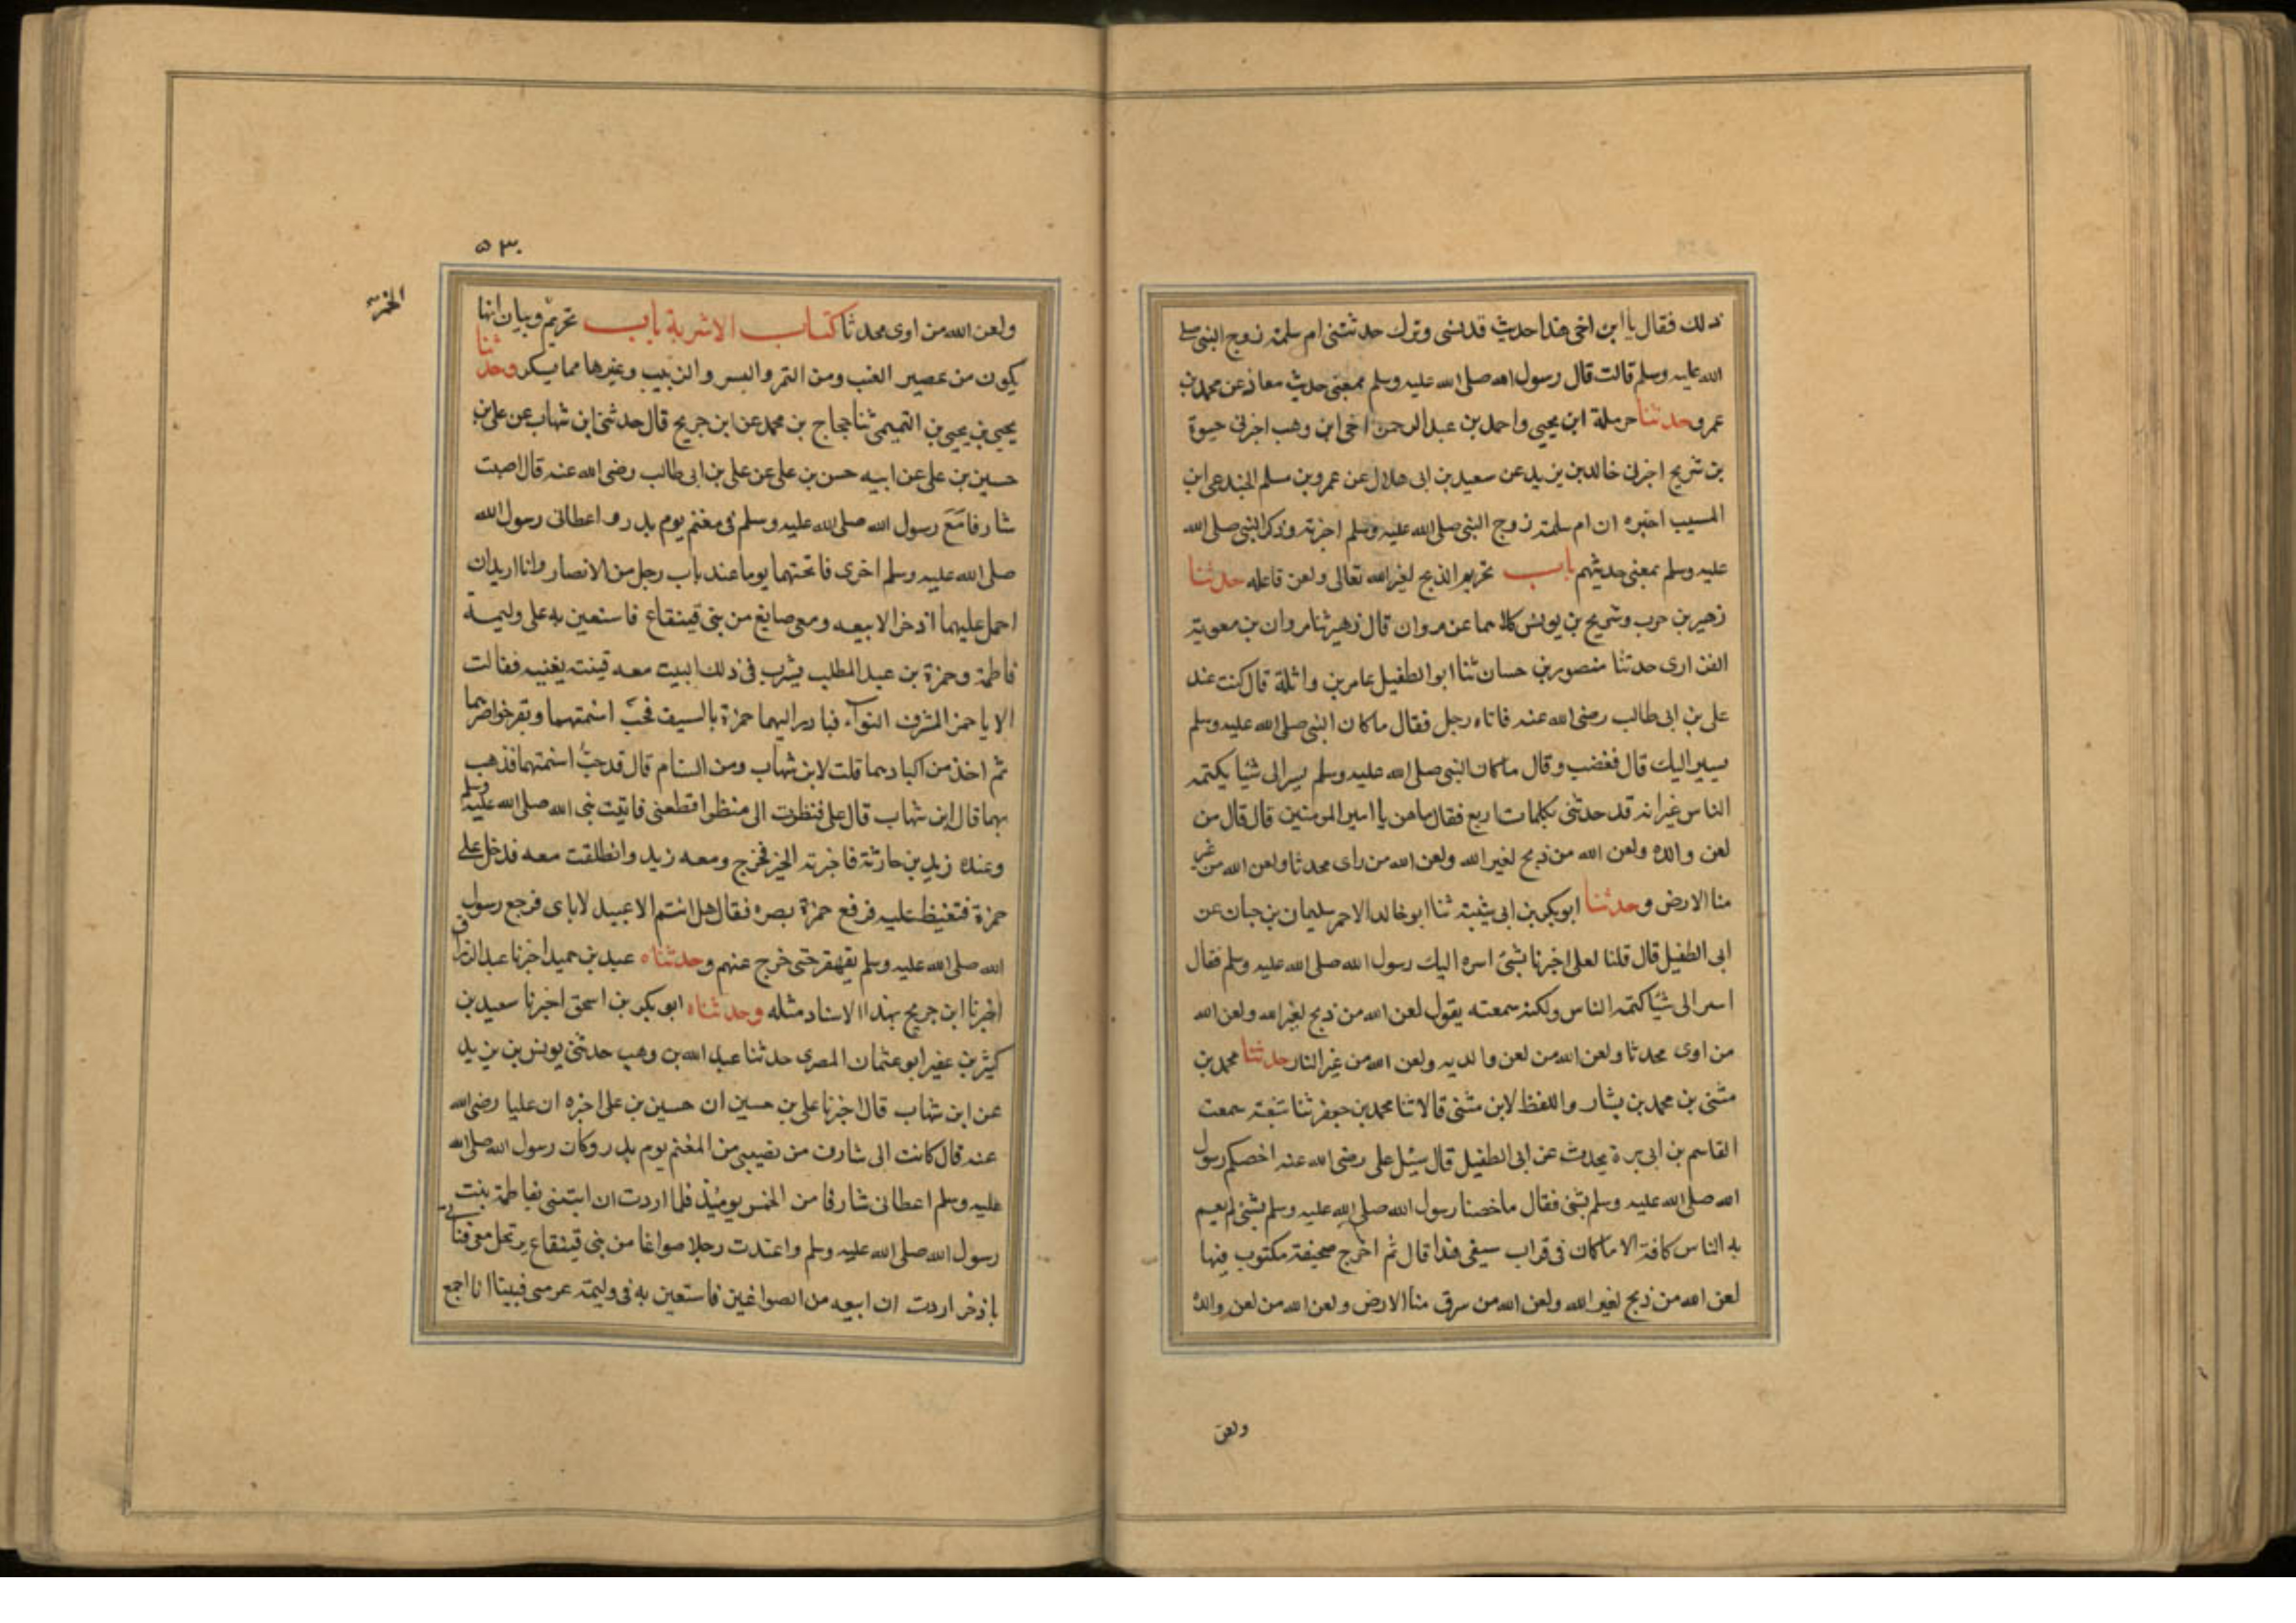 ذلك فقال يا ابن اخى هذا حديث قد نسى وترك حدثتنى ام سلمة زوج النبى صلى
الله عليه وسلم قالت قال رسول الله صلى الله عليه وسلم بمعنى حديث معاذ عن محمد بن
عمرو حدثنا حرملة ابن يحيى واحمد بن عبد الرحمن اخى ابن وهب اخبرنى حيوة
بن شريح اخبرنى خالد بن يزيد عن سعيد بن ابى هلال عن عمرو بن مسلم الجندعى ابن
المسيب اخبره ان ام سلمة زوج النبى صلى الله عليه وسلم اخبرته وذكر النبى صلى الله
عليه وسلم بمعنى حديثهم باب تحريم الذبح لغير الله تعالى ولعن فاعله حدثنا
زهير بن حرب وشريح بن يونس كلاهما عن مروان قال زهير ثنا مروان بن معوية
الفزارى حدثنا منصور بن حسان ثنا ابو الطفيل عامر بن واثلة قال كنت عند
على بن ابى طالب رضى الله عنه فاتاه رجل فقال ما كان النبى صلى الله عليه وسلم
يسير اليك قال فغضب وقال ما كان النبى صلى الله عليه وسلم يسر الى شيا يكتمه
الناس غير انه قد حدثنى بكلمات اربع فقال ما هن يا امير المومنين قال قال من
لعن والده ولعن الله من ذبح لغير الله ولعن الله من راى محدثا ولعن الله من غير
منا الارض وحدثنا ابو بكر بن ابى شيبة ثنا ابو خالد الاحمر سليمان بن حبان عن
ابى الطفيل قال قلنا لعلى اخبرنا بشئ اسره اليك رسول الله صلى الله عليه وسلم فقال
اسر الى شيا كتمه الناس ولكنه سمعته يقول لعن الله من ذبح لغير الله ولعن الله
من اوى محدثا ولعن الله من لعن والديه ولعن الله من غير النار حدثنا محمد بن
مثنى بن محمد بن بشار واللفظ لابن مثنى قالا ثنا محمد بن جعفر ثنا شعبة سمعت
القاسم بن ابى برة يحدث عن ابى الطفيل قال سئل على رضى الله عنه اخصكم رسول
الله صلى الله عليه وسلم بشئ فقال ما خصنا رسول الله صلى الله عليه وسلم بشئ لم يعم
به الناس كافة الا ما كان فى قراب سيفى هذا قال ثم اخرج صحيفة مكتوب فيها
لعن الله من ذبح لغير الله ولعن الله من سرق منا الارض ولعن الله من لعن والده
ولعن
٥٣٠
الخمر
ولعن الله من اوى محدثا كتاب الاشربة باب تحريم وبيان انها
يكون من عصير العنب ومن التمر والبسر والزبيب وغيرها مما يسكر وحدثنا
يحيى بن يحيى بن التميمى ثنا حجاج بن محمد عن ابن جريج قال حدثنى ابن شهاب عن على بن
حسين بن على عن ابيه حسن بن على عن على بن ابى طالب رضى الله عنه قال اصبت
شارفا مع رسول الله صلى الله عليه وسلم فى مغنم يوم بدر واعطانى رسول الله
صلى الله عليه وسلم اخرى فانختهما يوما عند باب رجل من الانصار وانا اريد ان
احمل عليهما اذخرا لابيعه ومعى صايغ من بنى قينقاع فاستعين به على وليمة
فاطمة وحمزة بن عبد المطلب يشرب فى ذلك البيت معه قينة يغنيه فقالت
الا يا حمز للشرف النوآء فبادر اليهما حمزة بالسيف فجب اسنمتهما وبقر خواصرهما
ثم اخذ من اكبادهما قلت لابن شهاب ومن السنام قال قد جب اسنمتهما فذهب
بهما قال ابن شهاب قال على فنظرت الى منظر افظعنى فاتيت نبى الله صلى الله عليه وسلم
وعنده زيد بن حارثة فاخبرته الخبر فخرج ومعه زيد وانطلقت معه فدخل على
حمزة فتغيظ عليه فرفع حمزة بصره فقال هل انتم الا عبيد لاباى فرجع رسول
الله صلى الله عليه وسلم يقهقر حتى خرج عنهم وحدثناه عبد بن حميد اخبرنا عبد الرزاق
اخبرنا ابن جريج بهذا الاسناد مثله وحدثناه ابو بكر بن اسحق اخبرنا سعيد بن
كثير بن عفير ابو عثمان المصرى حدثنا عبد الله بن وهب حدثنى يونس بن يزيد
عن ابن شهاب قال اخبرنا على بن حسين ان حسين بن على اخبره ان عليا رضى الله
عنه قال كانت الى شارف من نصيبى من المغنم يوم بدر وكان رسول الله صلى الله
عليه وسلم اعطانى شارفا من الخمس يومئذ فلما اردت ان ابتنى بفاطمة بنت
رسول الله صلى الله عليه وسلم واعتدت رجلا صواغا من بنى قينقاع يرتحل معى فناتى
باذخر اردت ان ابيعه من الصواغين فاستعين به فى وليمة عرسى فبينا انا اجمع